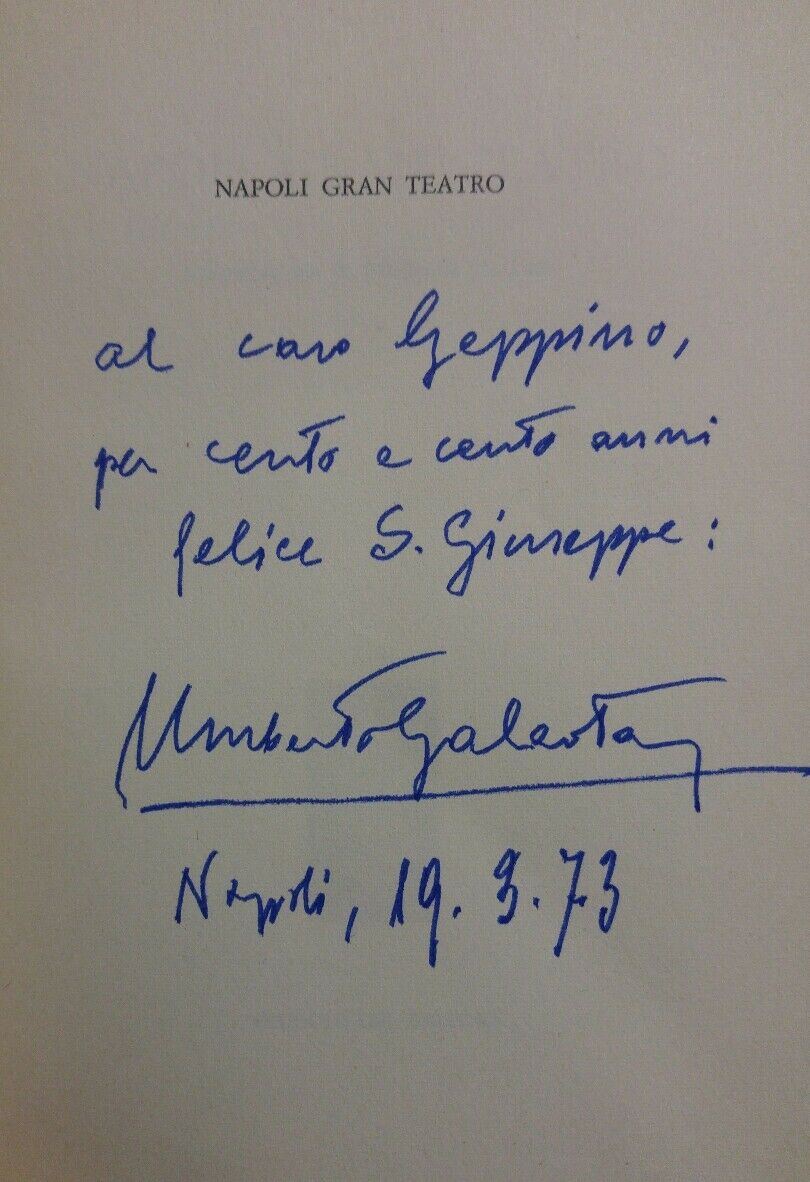 NAPOLI GRAN TEATRO
al caro Geppino,
per cento e cento anni
felice S. Giuseppe:
Umberto Galeota
Napoli, 19. 3. 73